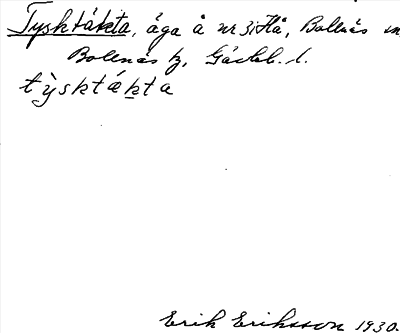 Tysktäkta, äga å nr 3 i Hå, Bollnäs sn
Bollnäs tg, Gävleb. l.
tỳsktáḵta
Erik Eriksson 1930.